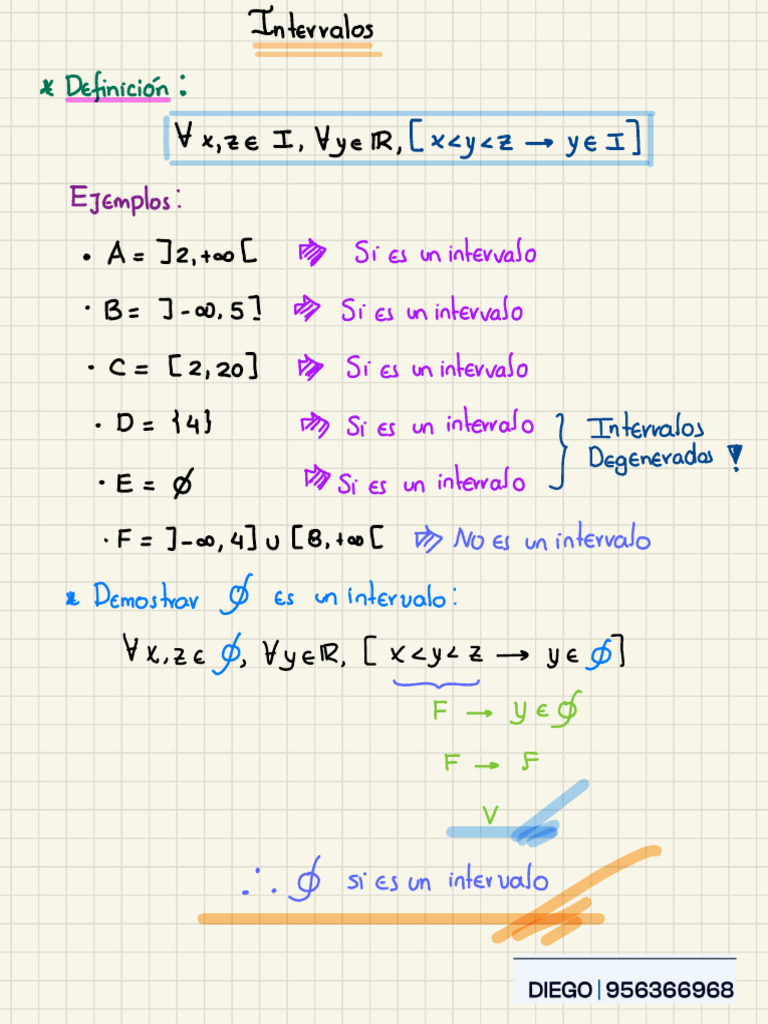 Intervalos
* Definición:
∀x,z∈ I, ∀y∈ℝ, [x<y<z → y∈ I]
Ejemplos:
• A = ]2,+∞[ ⇒ Si es un intervalo
• B = ]-∞,5] ⇒ Si es un intervalo
• C = [2,20] ⇒ Si es un intervalo
• D = {4} ⇒ Si es un intervalo
• E = ∅ ⇒ Si es un intervalo
} Intervalos
Degenerados !
• F = ]-∞,4]∪[8,+∞[ ⇒ No es un intervalo
* Demostrar ∅ es un intervalo:
∀x,z∈ ∅, ∀y∈ℝ, [x<y<z → y∈ ∅]
F → y∈∅
F → F
V
∴ ∅ si es un intervalo
DIEGO | 956366968